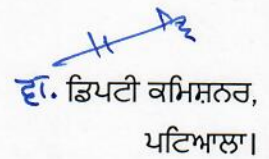 ਵਾ. ਡਿਪਟੀ ਕਮਿਸ਼ਨਰ,
ਪਟਿਆਲਾ।